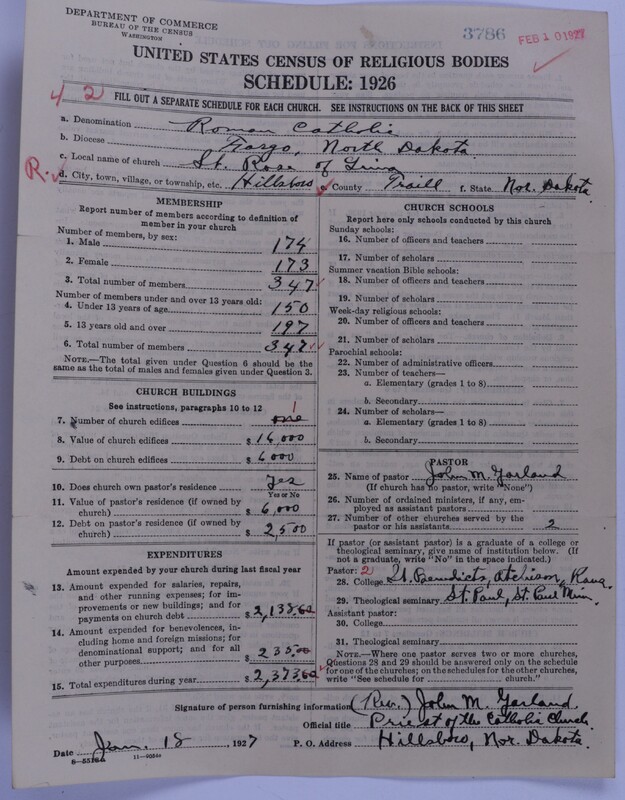 DEPARTMENT OF COMMERCE
BUREAU OF THE CENSUS
WASHINGTON
3786
FEB 10 1927
UNITED STATES CENSUS OF RELIGIOUS BODIES
SCHEDULE: 1926
4 2
FILL OUT A SEPARATE SCHEDULE FOR EACH CHURCH. SEE INSTRUCTIONS ON THE BACK OF THIS SHEET
a. Denomination Roman Catholic
b. Diocese Fargo, North Dakota
c. Local name of church St. Rose of Lima
R.
d. City, town, village, or township, etc. Hillsboro e. County Traill f. State Nor. Dakota.
MEMBERSHIP
Report number of members according to definition of member in your church
Number of members, by sex:
1. Male 174
2. Female 173
3. Total number of members 347
Number of members under and over 13 years old:
4. Under 13 years of age 150
5. 13 years old and over 197
6. Total number of members 347
NOTE.—The total given under Question 6 should be the same as the total of males and females given under Question 3.
CHURCH BUILDINGS
See instructions, paragraphs 10 to 12
1
7. Number of church edifices one
8. Value of church edifices $ 16,000
9. Debt on church edifices $ 6000
10. Does church own pastor's residence yes
Yes or No
11. Value of pastor's residence (if owned by
church) $ 6,000
12. Debt on pastor's residence (if owned by
church) $ 2500
EXPENDITURES
Amount expended by your church during last fiscal year
13. Amount expended for salaries, repairs,
and other running expenses; for im-
provements or new buildings; and for
payments on church debt $ 2,138.62
14. Amount expended for benevolences, in-
cluding home and foreign missions; for
denominational support; and for all
other purposes $ 235.00
15. Total expenditures during year $ 2,373.62
CHURCH SCHOOLS
Report here only schools conducted by this church
Sunday schools:
16. Number of officers and teachers
17. Number of scholars
Summer vacation Bible schools:
18. Number of officers and teachers
19. Number of scholars
Week-day religious schools:
20. Number of officers and teachers
21. Number of scholars
Parochial schools:
22. Number of administrative officers
23. Number of teachers—
a. Elementary (grades 1 to 8)
b. Secondary
24. Number of scholars—
a. Elementary (grades 1 to 8)
b. Secondary
PASTOR
25. Name of pastor John M. Garland
(If church has no pastor, write "None")
26. Number of ordained ministers, if any, em-
ployed as assistant pastors
27. Number of other churches served by the
pastor or his assistants 2
If pastor (or assistant pastor) is a graduate of a college or
theological seminary, give name of institution below. (If
not a graduate, write "No" in the space indicated.)
Pastor: 2
28. College St. Benedicts, Atchison, Kans.
29. Theological seminary St. Paul, St. Paul Minn.
Assistant pastor:
30. College
31. Theological seminary
NOTE.—Where one pastor serves two or more churches,
Questions 28 and 29 should be answered only on the schedule
for one of the churches; on the schedules for the other churches,
write "See schedule for church."
Signature of person furnishing information (Rev.) John M. Garland.
Official title Priest of the Catholic Church.
Date Jan. 18 1927 P. O. Address Hillsboro, Nor. Dakota.